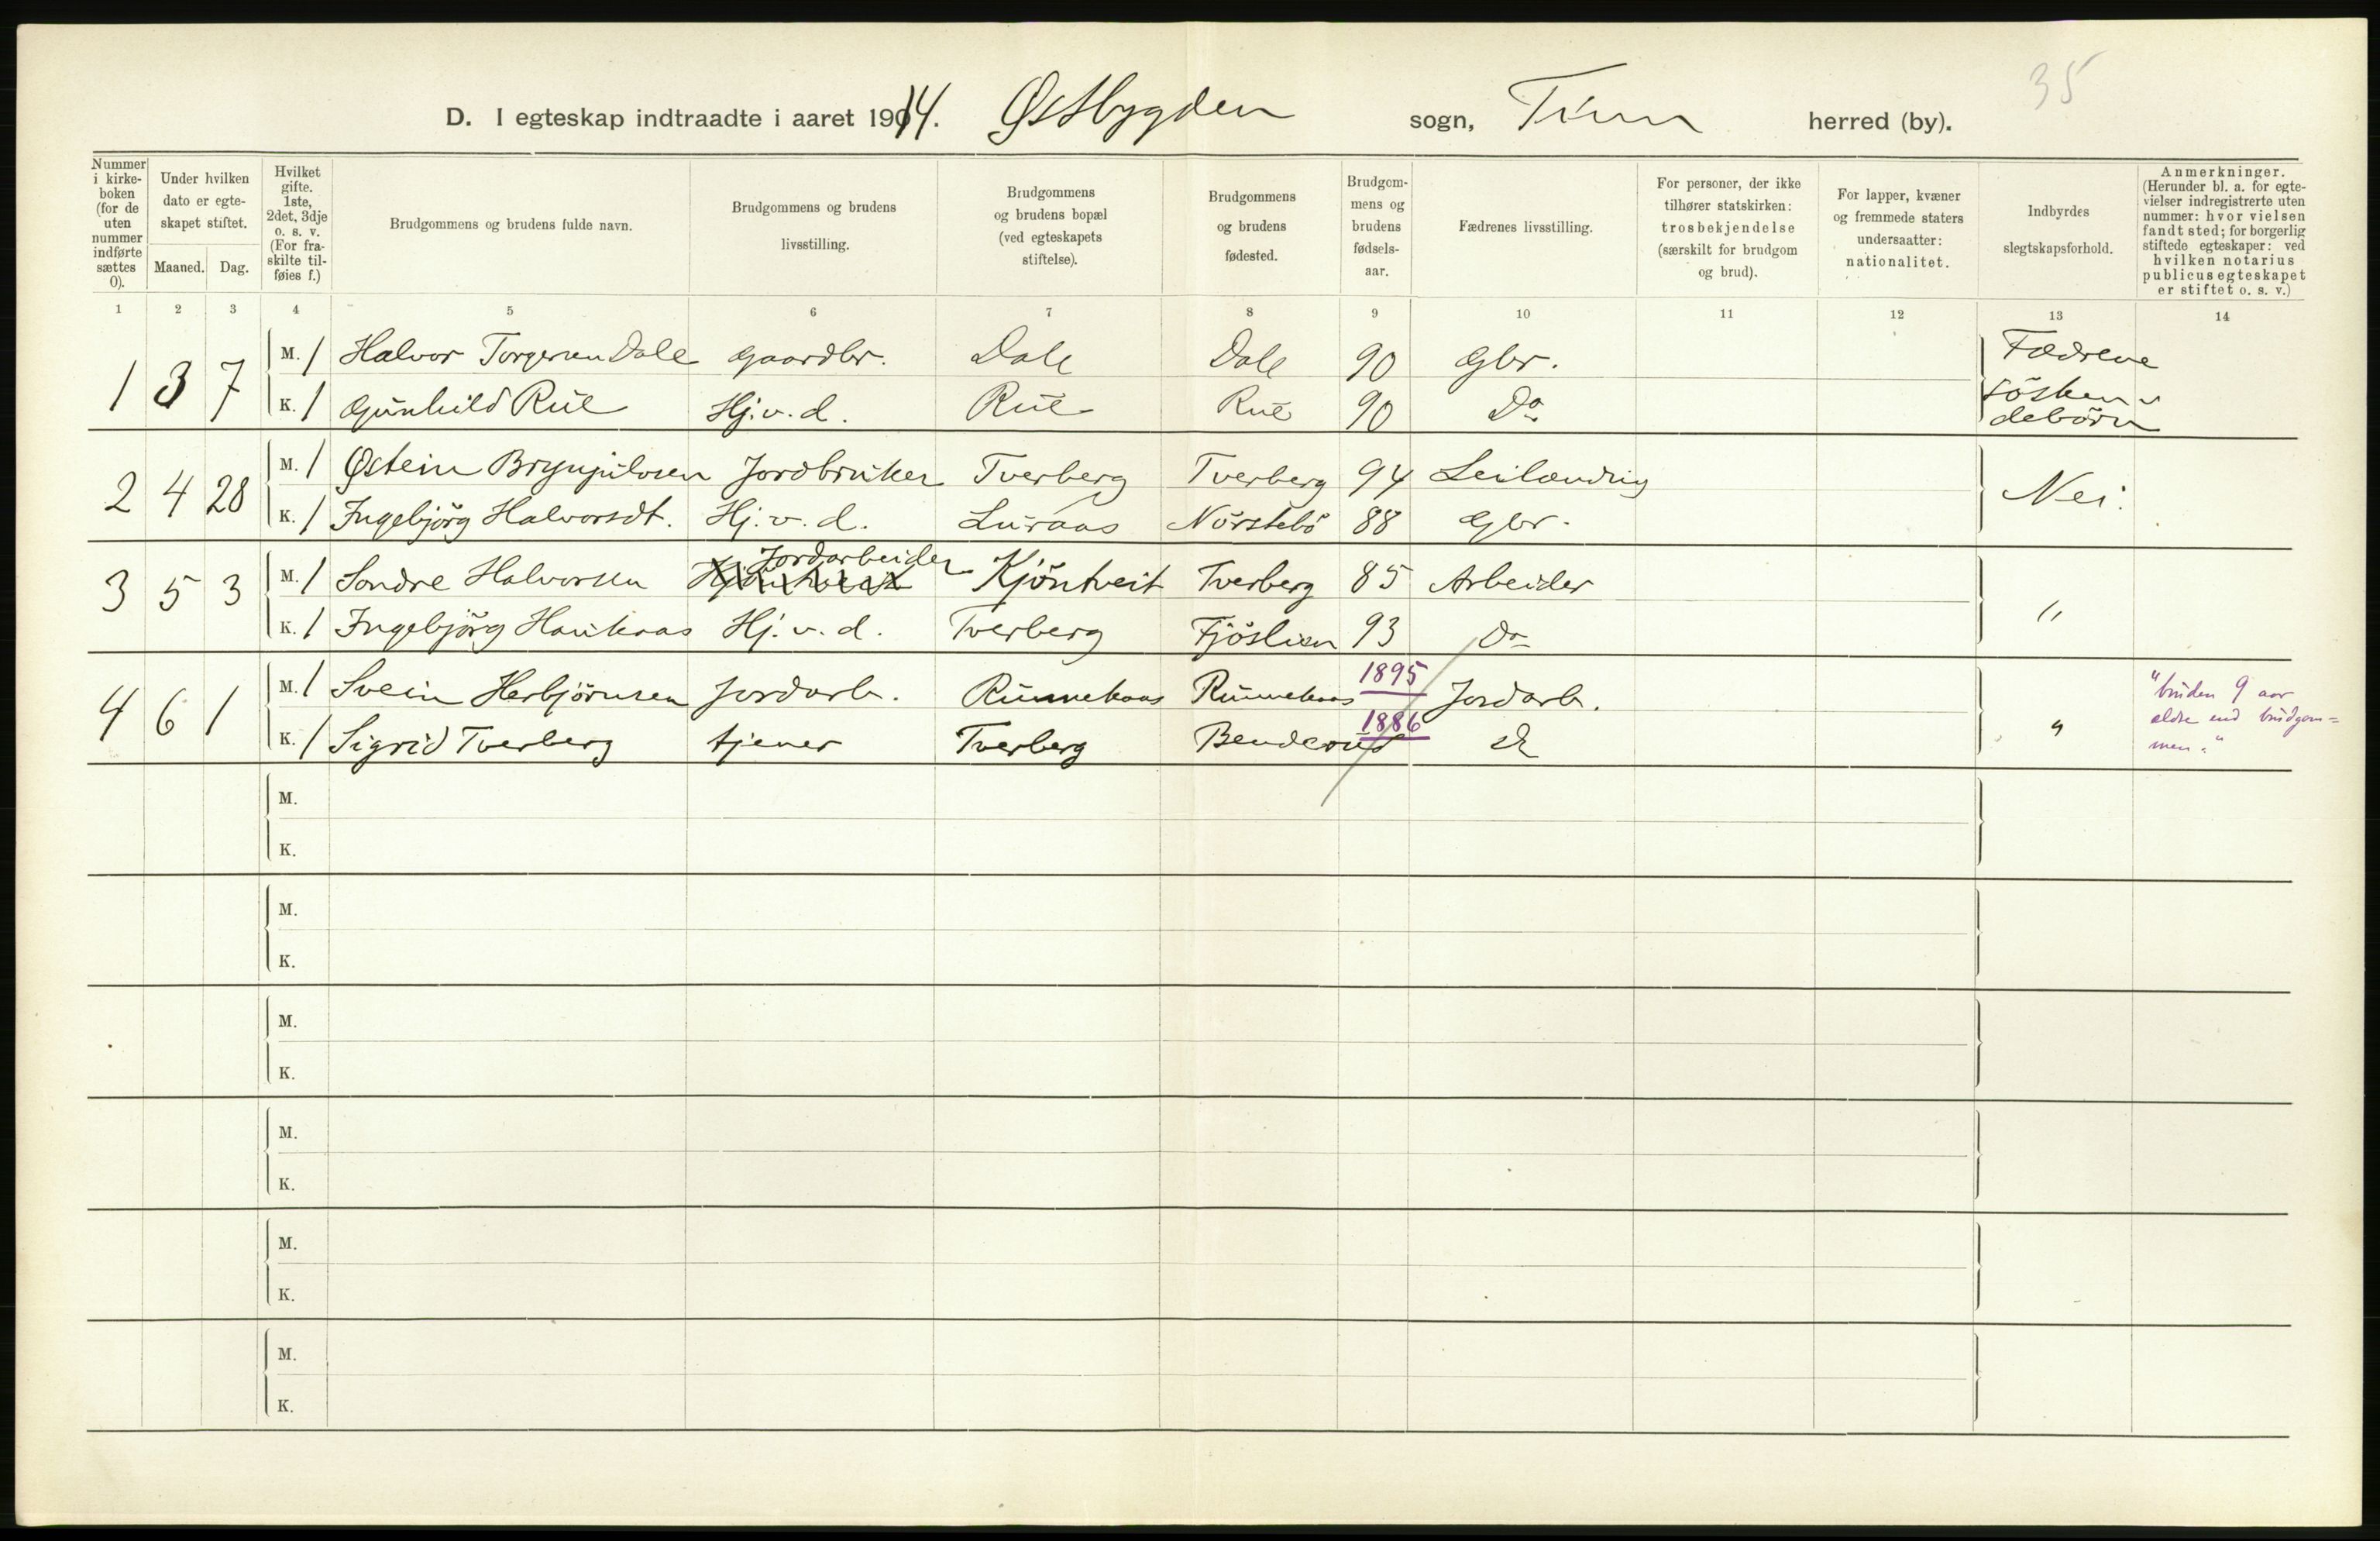 35
D. I egteskap indtraadte i aaret 1914. Østbygden sogn, Tinn herred (by).
Nummer i kirke-boken (for de uten nummer indførte sættes 0).
Under hvilken dato er egte-skapet stiftet.
Maaned. Dag.
Hvilket gifte. 1ste, 2det, 3dje o. s. v. (For fra-skilte til-føies f.)
Brudgommens og brudens fulde navn.
Brudgommens og brudens livsstilling.
Brudgommens og brudens bopæl (ved egteskapets stiftelse).
Brudgommens og brudens fødested.
Brudgom-mens og brudens fødsels-aar.
Fædrenes livsstilling.
For personer, der ikke tilhører statskirken: trosbekjendelse (særskilt for brudgom og brud).
For lapper, kvæner og fremmede staters undersaatter: nationalitet.
Indbyrdes slegtskapsforhold.
Anmerkninger. (Herunder bl. a. for egte-vielser indregistrerte uten nummer: hvor vielsen fandt sted; for borgerlig stiftede egteskaper: ved hvilken notarius publicus egteskapet er stiftet o. s. v.)
1 2 3 4 5 6 7 8 9 10 11 12 13 14
1 3 7 M. 1 Halvor Torgersen Dale Gaardbr. Dale Dale 90 Gbr. Fædrene
K. 1 Gunhild Rue Hj.v.d. Rue Rue 90 Do
søsken-
debörn
2 4 28 M. 1 Østein Brynjulvsen Jordbruker Tverberg Tverberg 94 Leilænding Nei.
K. 1 Ingebjörg Halvorsdt. Hj.v.d. Luraas Nörstebö 88 Gbr.
3 5 3 M. 1 Sondre Halvorsen Jordarbeider Kjöntveit Tverberg 85 Arbeider "
K. 1 Ingebjörg Haukaas Hj.v.d. Tverberg Fjöslien 93 Do
4 6 1 M. 1 Svein Herbjörnsen Jordarb. Runnehaas Runnehaas 1895 Jordarb. "
K. 1 Sigrid Tverberg tjener Tverberg Benderud 1886 do
"bruden 9 aar
eldre end brudgom=
men."
M.
K.
M.
K.
M.
K.
M.
K.
M.
K.
M.
K.